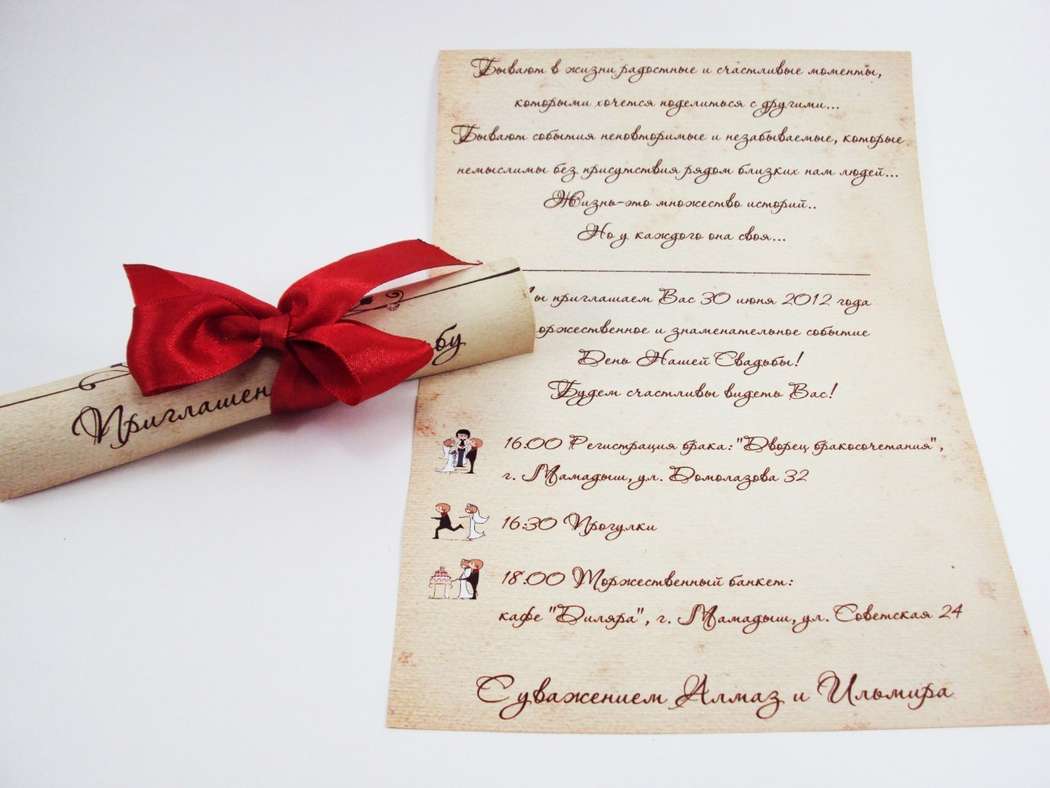 Бывают в жизни радостные и счастливые моменты,
которыми хочется поделиться с другими...
Бывают события неповторимые и незабываемые, которые
немыслимы без присутствия рядом близких нам людей...
Жизнь-это множество историй..
Но у каждого она своя...
приглашаем Вас 30 июня 2012 года
и знаменательное событие
День Нашей Свадьбы!
Будем счастливы видеть Вас!
16.00 Регистрация брака: "Дворец бракосочетания",
г. Мамадыш, ул. Домолазова 32
16:30 Прогулки
18.00 Торжественный банкет:
кафе "Диляра", г. Мамадыш, ул. Советская 24
С уважением Алмаз и Ильмира
Приглашен бу